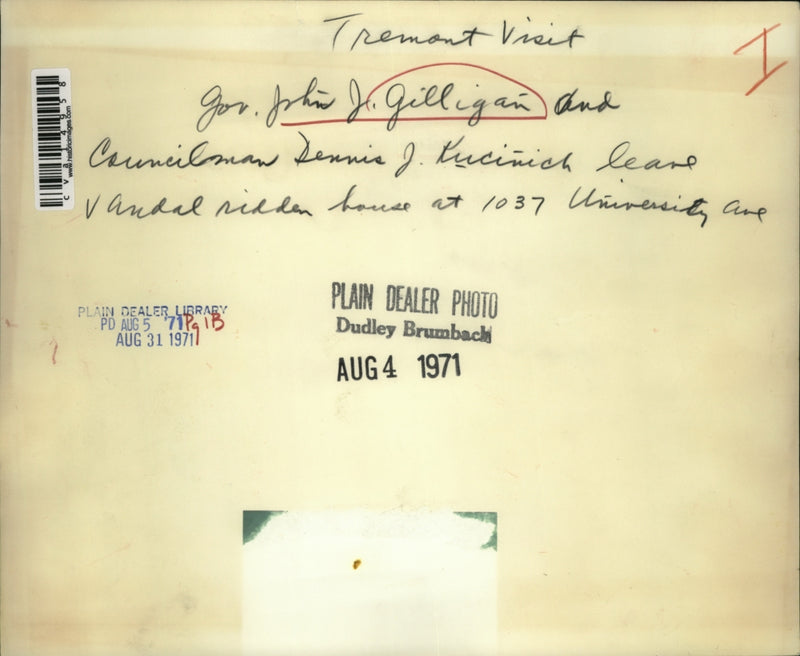 Tremont Visit
I
Gov. John J. Gilligan and
Councilman Dennis J. Kucinich leave
Vandal ridden house at 1037 University Ave
CVB14958
www.historicimages.com
PLAIN DEALER LIBRARY
PD AUG 5 '71 Pg 1B
AUG 31 1971
PLAIN DEALER PHOTO
Dudley Brumbach
AUG 4 1971